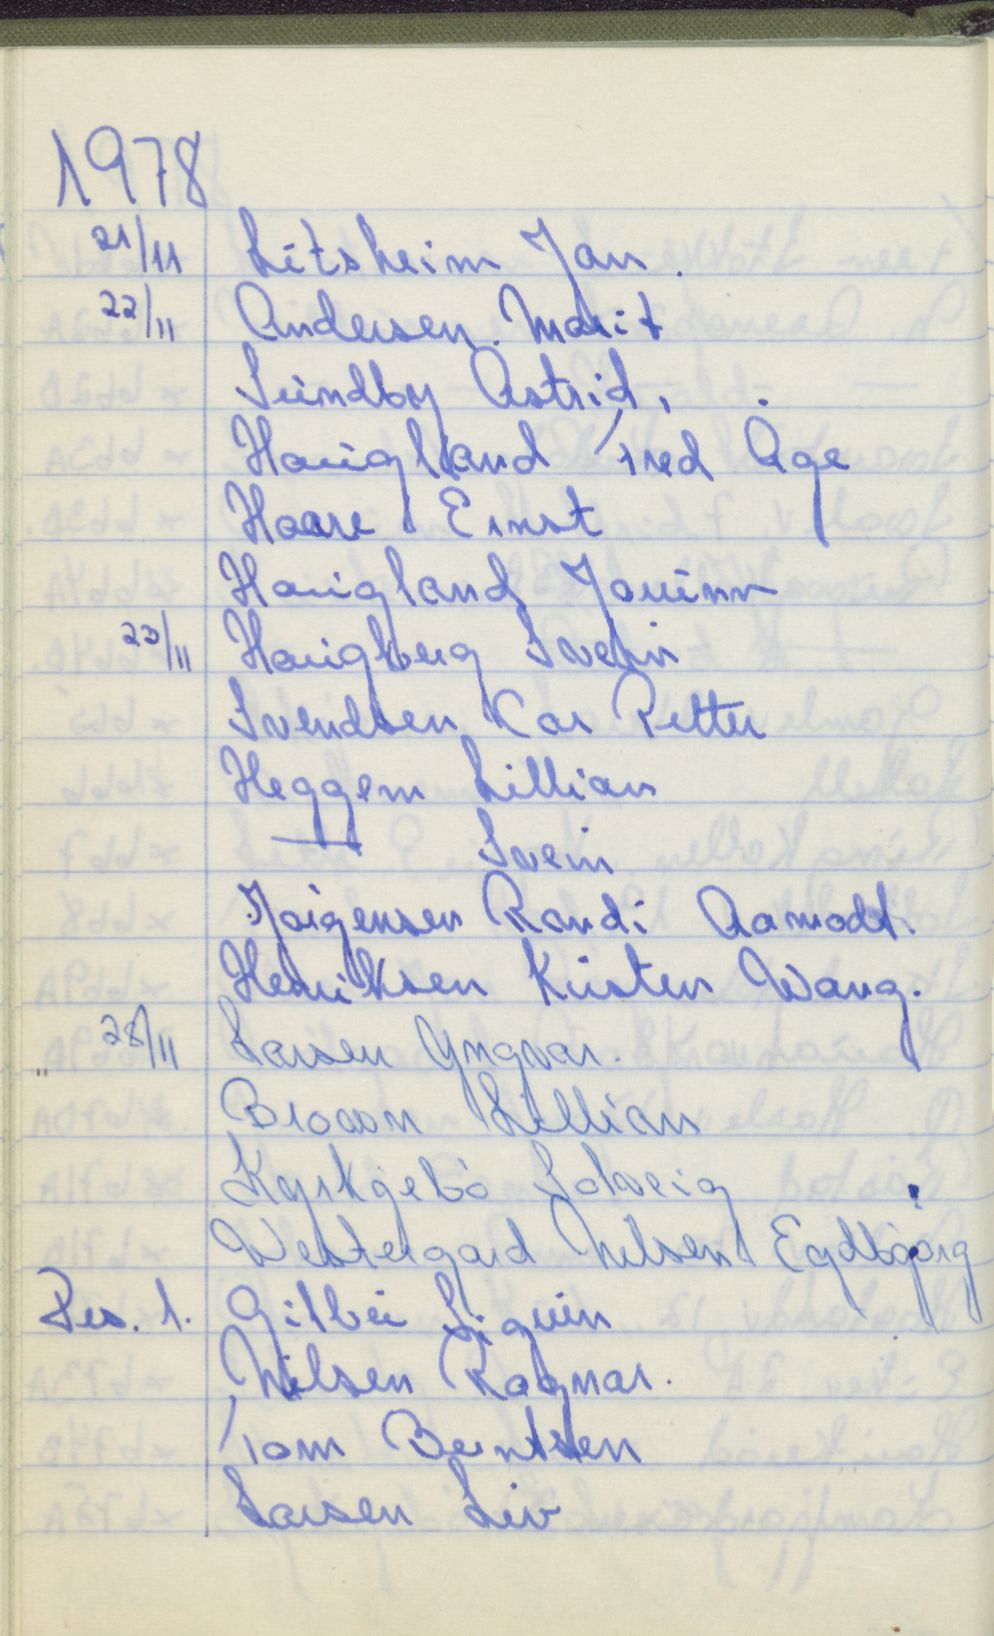 1978
21/11 Litsheim Jan.
22/11 Andersen Marit
Sundby Astrid.
Haugland Fred Åge
Haare Ernst
Haugland Jouinn
23/11 Haugberg Svein
Svendsen Kar Petter
Heggem Lillian
—"— Svein
Jørgensen Randi Aamodt.
Henriksen Kirsten Wang.
28/11 Larsen Yngvar.
" Brown Lillian
Kyrkjebø Solveig
Westergard Nilsen Eydbjørg
Des. 1. Gilbei Sigrun
Nilsen Ragnar.
Tom Berntsen
Larsen Liv